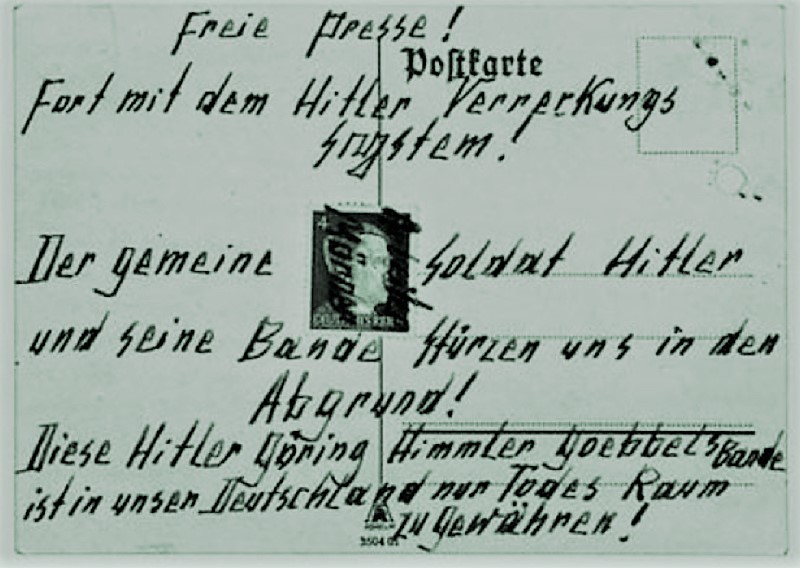 Freie Presse!
Postkarte
Fort mit dem Hitler Verreckungs
system!
Der gemeine Soldat Hitler
und seine Bande stürzen uns in den
Abgrund!
Diese Hitler Göring Himmler Goebbels Bande
ist in unser Deutschland nur Todes Raum
zu gewähren!